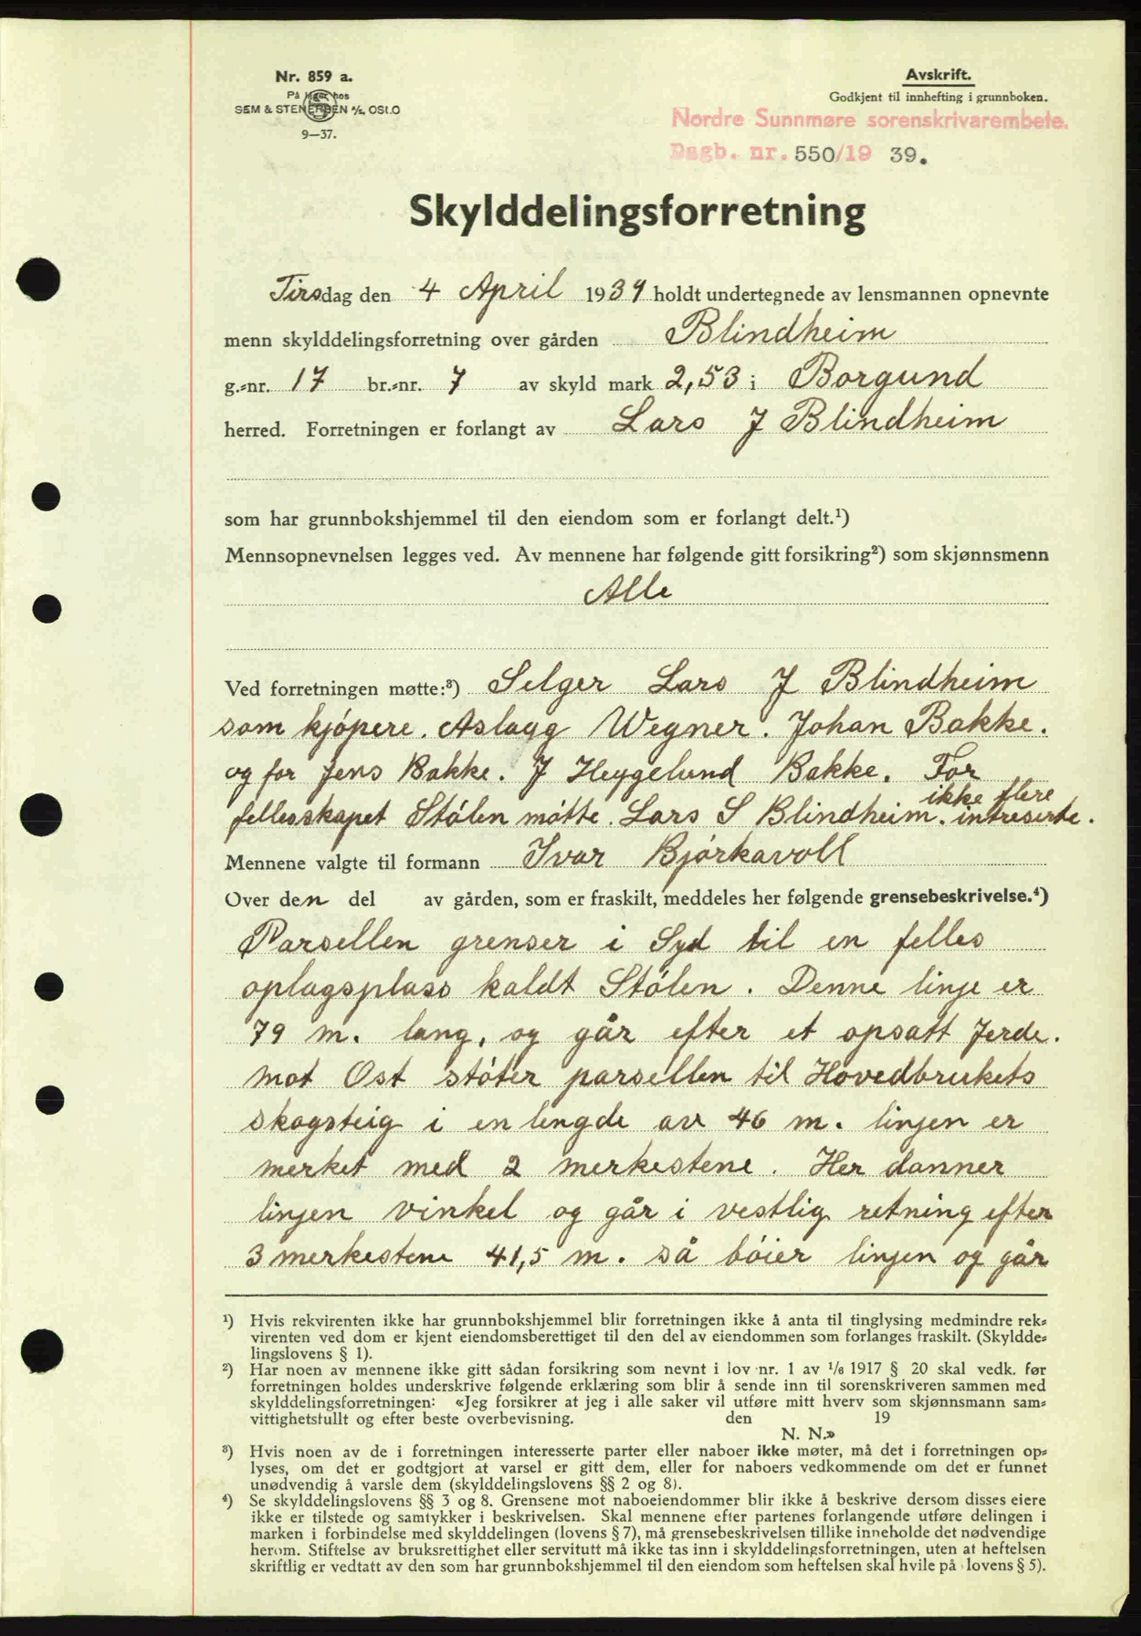 Nr. 859 a.
På lager hos
SEM & STENERSEN A/S, OSLO
9—37.
Avskrift.
Godkjent til innhefting i grunnboken.
Nordre Sunnmøre sorenskrivarembete.
Dagb. nr. 550/19 39.
Skylddelingsforretning
Tirsdag den 4 April 1939 holdt undertegnede av lensmannen opnevnte
menn skylddelingsforretning over gården Blindheim
g.-nr. 17 br.-nr. 7 av skyld mark 2,53 i Borgund
herred. Forretningen er forlangt av Lars J Blindheim
som har grunnbokshjemmel til den eiendom som er forlangt delt.¹)
Mennsopnevnelsen legges ved. Av mennene har følgende gitt forsikring²) som skjønnsmenn
Alle
Ved forretningen møtte:³) Selger Lars J Blindheim
som kjøpere. Aslagg Wegner. Johan Bakke.
og for Jens Bakke. J Heggelund Bakke. For
fellesskapet Stølen møtte. Lars S Blindheim. ikke flere intreserte.
Mennene valgte til formann Ivar Bjørkavoll
Over den del av gården, som er fraskilt, meddeles her følgende grensebeskrivelse.⁴)
Parsellen grenser i Syd til en felles
oplagsplass kaldt Stølen. Denne linje er
79 m. lang, og går efter et opsatt Jerde.
mot Øst støter parsellen til Hovedbrukets
skogsteig i en lengde av 46 m. linjen er
merket med 2 merkestene. Her danner
linjen vinkel og går i vestlig retning efter
3 merkestene 41,5 m. så bøier linjen og går
¹) Hvis rekvirenten ikke har grunnbokshjemmel blir forretningen ikke å anta til tinglysing medmindre rek-
virenten ved dom er kjent eiendomsberettiget til den del av eiendommen som forlanges fraskilt. (Skyldde-
lingslovens § 1).
²) Har noen av mennene ikke gitt sådan forsikring som nevnt i lov nr. 1 av 1/6 1917 § 20 skal vedk. før
forretningen holdes underskrive følgende erklæring som blir å sende inn til sorenskriveren sammen med
skylddelingsforretningen: «Jeg forsikrer at jeg i alle saker vil utføre mitt hverv som skjønnsmann sam-
vittighetsfullt og efter beste overbevisning. den 19
N. N.»
³) Hvis noen av de i forretningen interesserte parter eller naboer ikke møter, må det i forretningen op-
lyses, om det er godtgjort at varsel er gitt dem, eller for naboers vedkommende om det er funnet
unødvendig å varsle dem (skylddelingslovens §§ 2 og 8).
⁴) Se skylddelingslovens §§ 3 og 8. Grensene mot naboeiendommer blir ikke å beskrive dersom disses eiere
ikke er tilstede og samtykker i beskrivelsen. Skal mennene efter partenes forlangende utføre delingen i
marken i forbindelse med skylddelingen (lovens § 7), må grensebeskrivelsen tillike inneholde det nødvendige
herom. Stiftelse av bruksrettighet eller servitutt må ikke tas inn i skylddelingsforretningen, uten at heftelsen
skriftlig er vedtatt av den som har grunnbokshjemmel til den eiendom som heftelsen skal hvile på (lovens § 5).